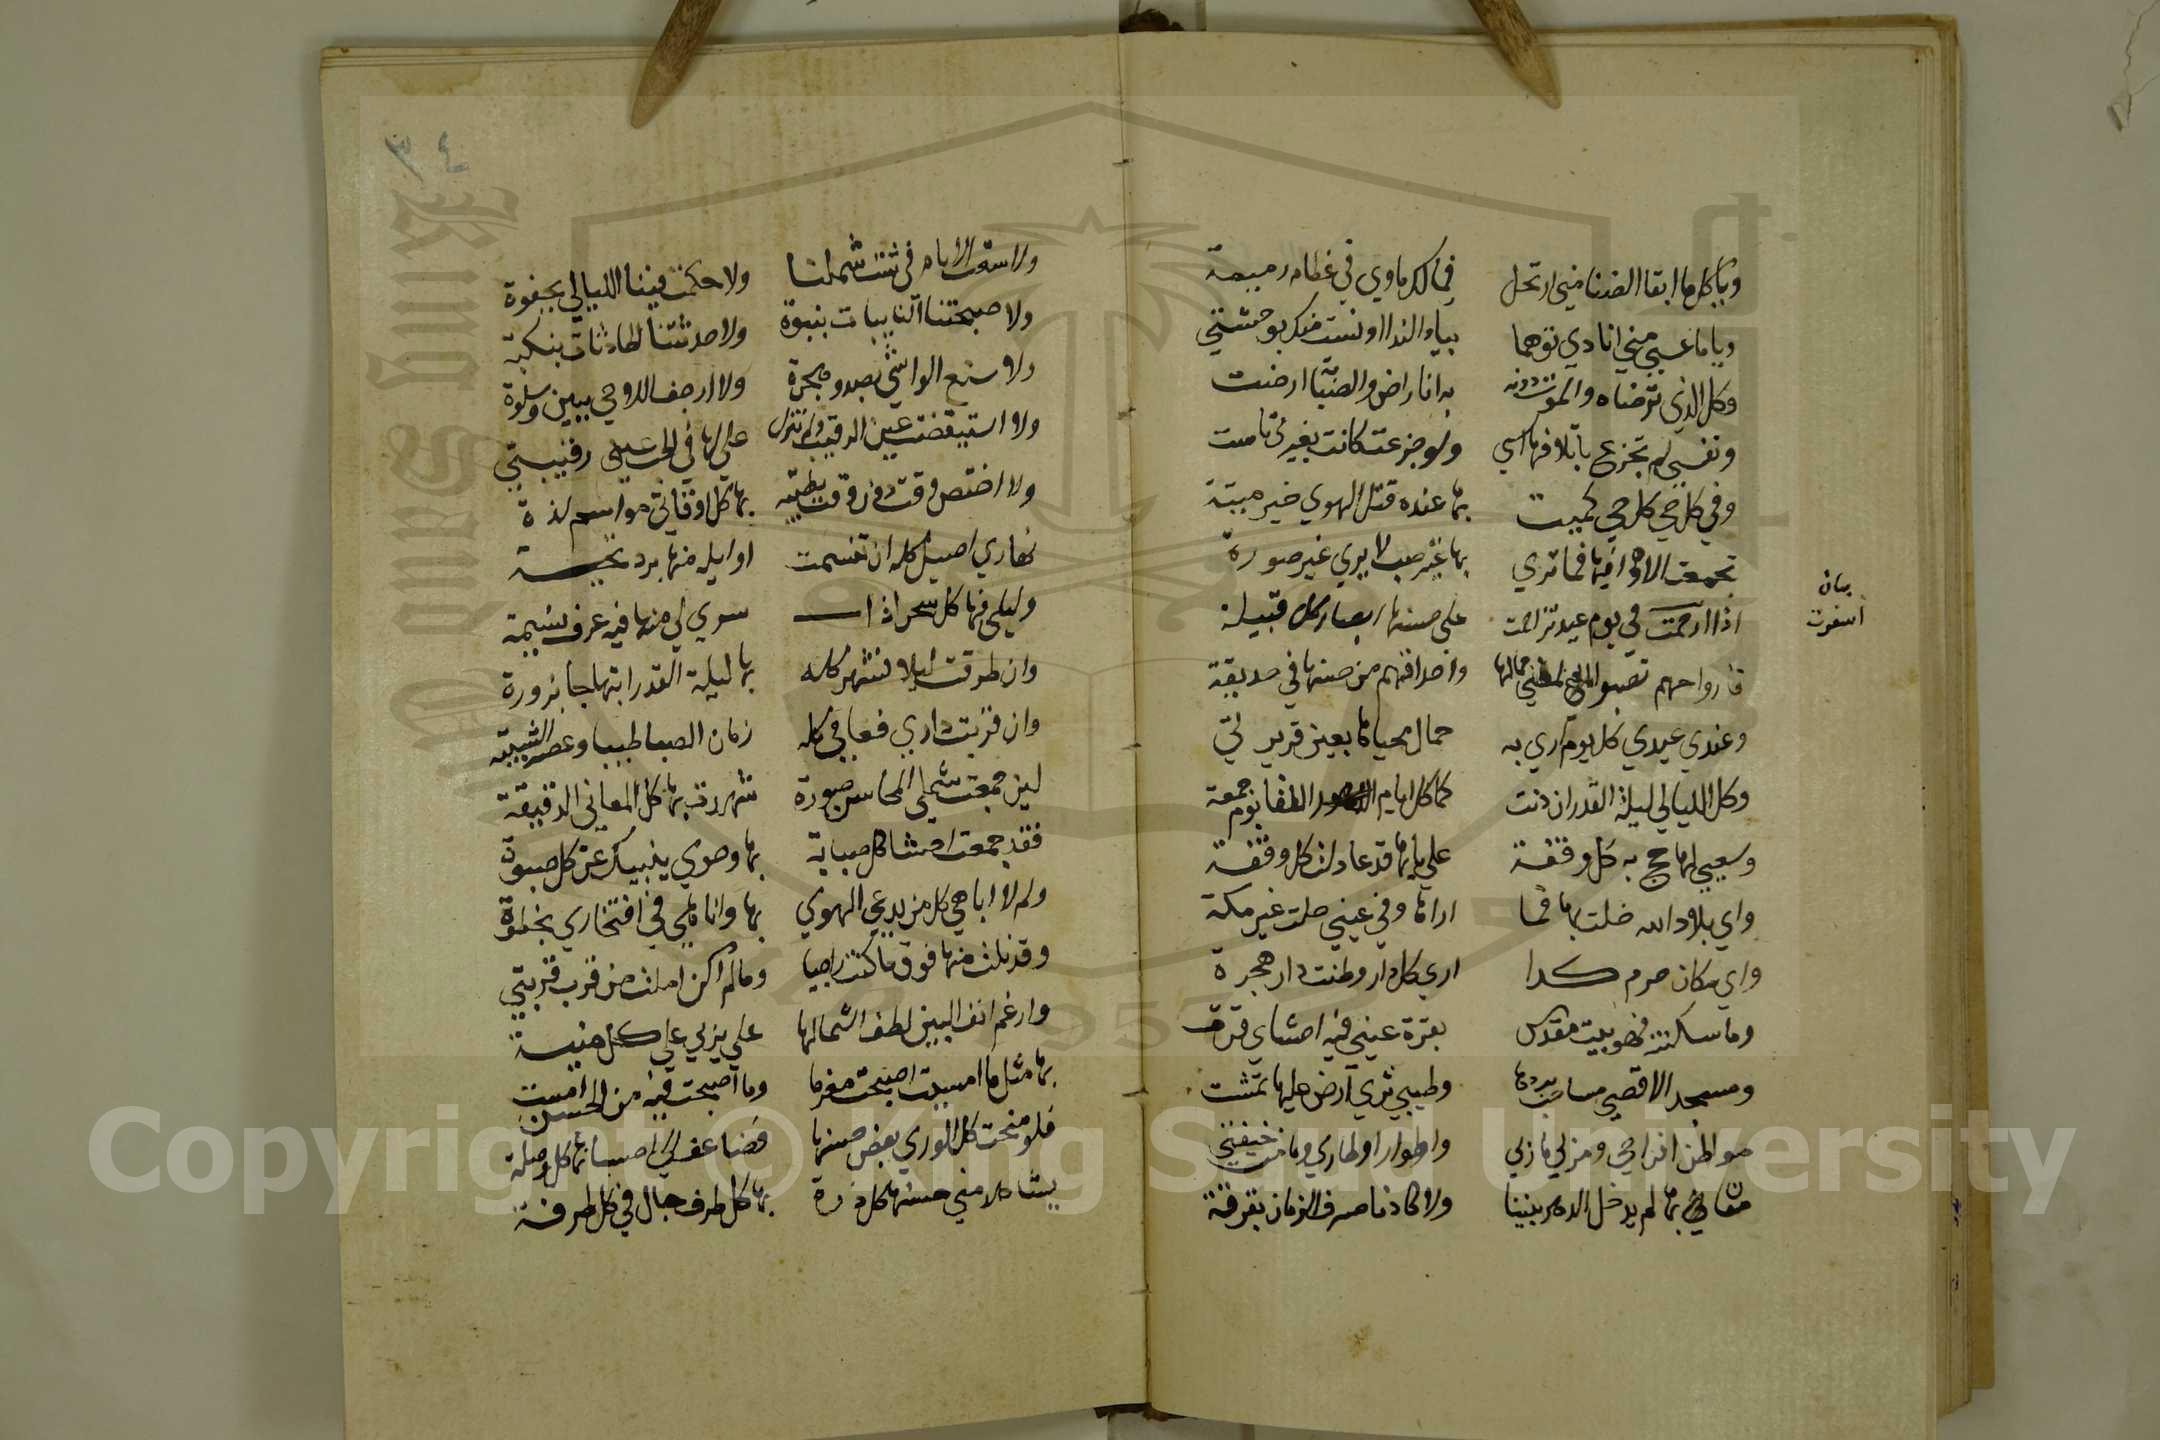 ويا كل ما ابقا الضنا مني ارتحل فمالك ماوي في عظام رميمة
ويا ما عسي مني انادي توهما بياء الندا اونست منك بوحشتي
وكل الذي ترضاه والموت دونه به انا راض والصبا ارضت
ونفسي لم تجزع باتلافها اسي ولو جزعت كانت بغيري تاست
وفي كل حي كل حي كميت بها عنده قتل الهوي خير ميتة
تجمعت الاهوا فيها فما تري بها غير صب لا يري غير صورة
اذا اسفرت في يوم عيد تزاحمت علي حسنها ابصار كل قبيلة
بيان
اسفرت
فارواحهم تصبوا لمعني جمالها واحداقهم من حسنها في حديقة
وعندي عيدي كل يوم اري به جمال محياها بعين قريرتي
وكل الليالي ليلة القدر ان دنت كما كل ايام اللقا يوم جمعة
وسعيي لها حج به كل وقفة علي بابها قد عادلت كل وقفة
واي بلاد الله حلت بها فما اراها وفي عيني حلت غير مكة
واي مكان حرم كدا اري كل دار وطنت دار هجرة
وما سكنته فهو بيت مقدس بقرة عيني فيه احشاي قرت
ومسجد الاقصي مساحب بردها وطيبي ثري ارض عليها تمشت
مواطن افراحي ومربي ماربي واطوار اوطاري ومامن خيفتي
مغان بها لم يدخل الدهر بيننا ولا كادنا صرف الزمان بفرقة
٣٤
ولا سعت الايام في شت شملنا ولا حكمت فينا الليالي بجفوة
ولا صبحتنا النايبات بنبوة ولا حدثتنا الحادثات بنكبة
ولا شنع الواشي بصد وهجرة ولا ارجف اللاحي ببين وسلوة
ولا استيقضت عين الرقيب ولم تزل علي لها في الحب عيني رقيبتي
ولا اختص وقت دون وقت بطيبه بها كل اوقاتي مواسم لذة
نهاري اصيل كله ان تنسمت اوايله منها برد تحية
وليلي فيها كل سحر اذا سوي لي منها فيه عرف نسيمة
وان طرقت ليلا فشهر كله بها ليلة القدر ابتهاجا بزورة
وان قربت داري فعامي كله زمان الصبا طيبا وعصر الشبيبة
لين جمعت شمل المحاسن صورة شهدت بها كل المعاني الدقيقة
فقد جمعت احشا كل صبابة بها وجوي ينبيك عن كل صبوة
ولم لا اباهي كل من يدعي الهوي بها وانا هي في افتخاري بخطوة
وقد نلت منها فوق ما كنت راجيا وما لم اكن املت من قرب قربتي
وارغم انف البين لطف اشتمالها علي يربي علي كل منية
بها مثل ما امسيت اصبحت مغرما وما اصبحت فيه من الحسن امست
فلو منحت كل الوري بعض حسنها بها كل وصلة
يشاهد مني حسنها كل ذرة بها كل طرف جال في كل طرفة